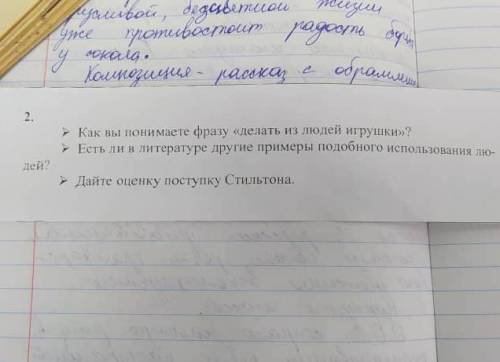 трусливой, бесцветной жизни
уже противостоит радость борьбы
у сокола.
Композиция - рассказ с обрамлением
2.
➢ Как вы понимаете фразу «делать из людей игрушки»?
➢ Есть ли в литературе другие примеры подобного использования лю-
дей?
➢ Дайте оценку поступку Стильтона.